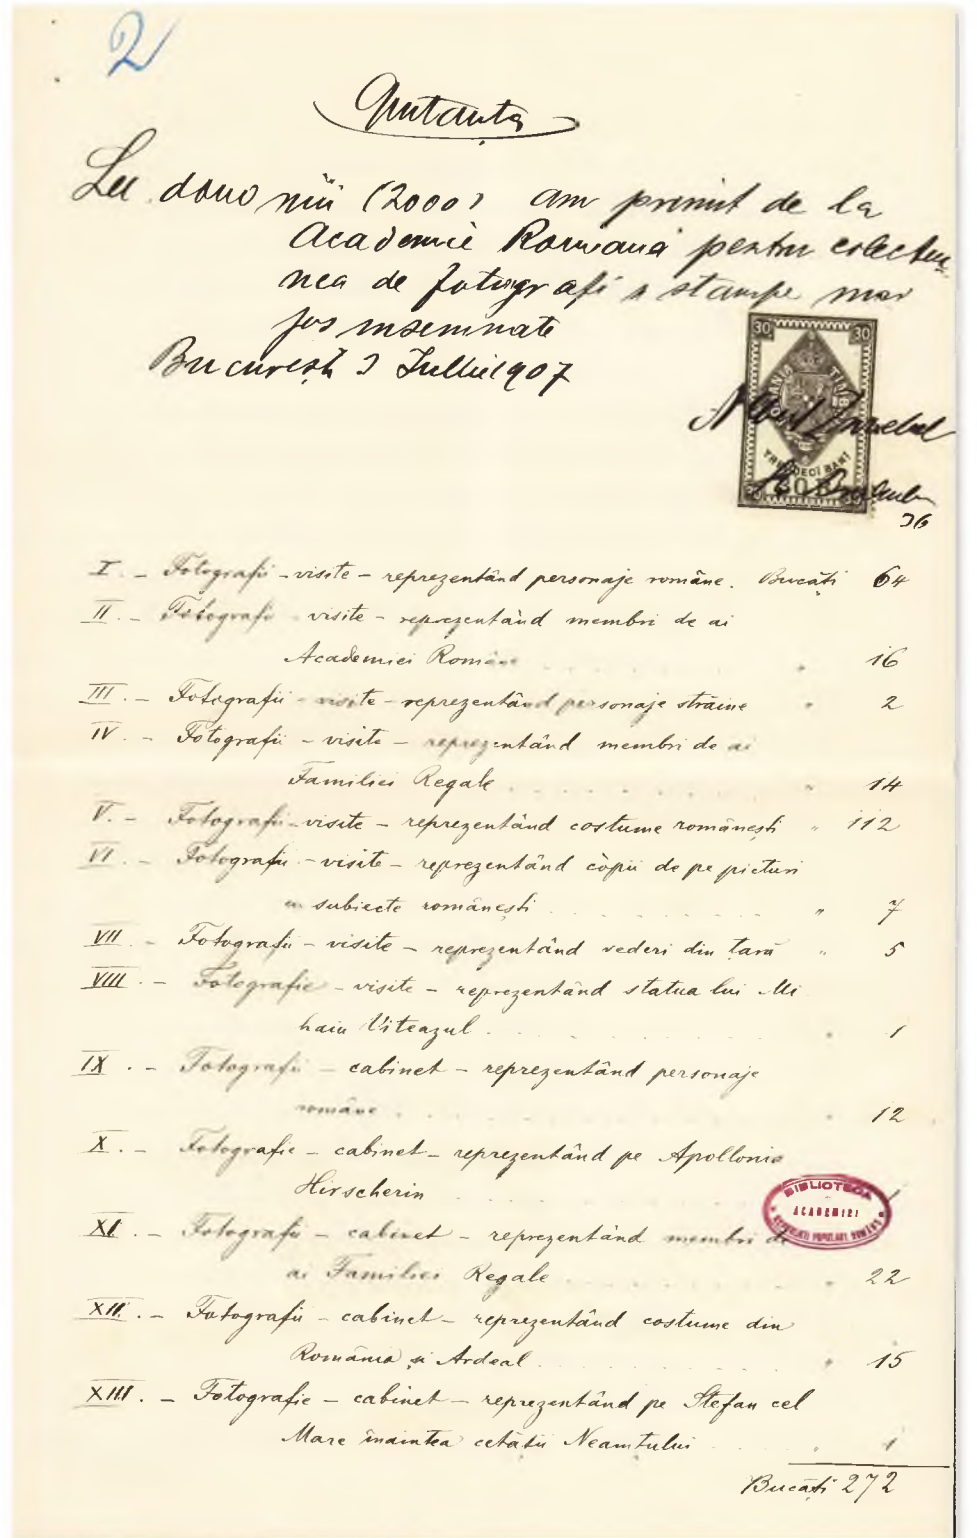 2
Quitanta
Lei douo mii (2000) am primit de la
Academie Romana pentru colectiu-
nea de fotografi si stampe mai
jos insemnate
Bucuresti 3 Iulie 1907
30 30
ROMANIA TIMBRU
TREIDECI BANI
30 30
36
I. – Fotografii – visite – reprezentând personaje române. Bucăți 64
II. – Fotografii – visite – reprezentând membri de ai
Academiei Române . . . . . " 16
III. – Fotografii – visite – reprezentând personaje străine " 2
IV. – Fotografii – visite – reprezentând membri de ai
Familiei Regale . . . . . " 14
V. – Fotografii – visite – reprezentând costume românești " 112
VI. – Fotografii – visite – reprezentând còpii de pe picturi
cu subiecte românești . . . . . " 7
VII. – Fotografii – visite – reprezentând vederi din țară " 5
VIII. – Fotografie – visite – reprezentând statua lui Mi
haiu Viteazul . . . . . " 1
IX. – Fotografii – cabinet – reprezentând personaje
române . . . . . " 12
X. – Fotografie – cabinet – reprezentând pe Apollonia
Hirscherin . . . . . 1
BIBLIOTECA
ACADEMIEI
REPUBLICII POPULARE ROMÂNE
XI. – Fotografii – cabinet – reprezentând membri de
ai Familiei Regale . . . . . " 22
XII. – Fotografii – cabinet – reprezentând costume din
România și Ardeal . . . . . " 15
XIII. – Fotografie – cabinet – reprezentând pe Stefan cel
Mare înaintea cetății Neamțului . . " 1
Bucăți 272